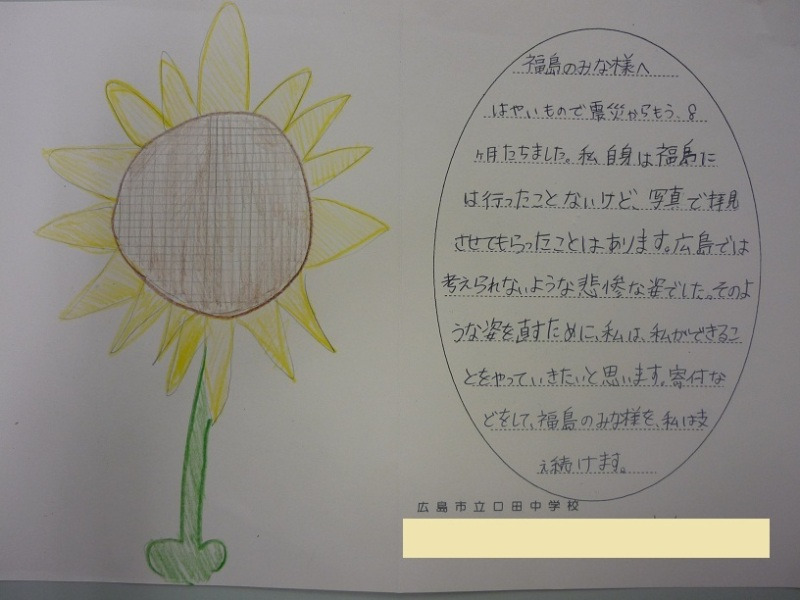 福島のみな様へ
はやいもので震災からもう、8
ヶ月たちました。私自身は福島に
は行ったことないけど、写真で拝見
させてもらったことはあります。広島では
考えられないような悲惨な姿でした。そのよ
うな姿を直すために、私は、私ができるこ
とをやっていきたいと思います。寄付な
どをして、福島のみな様を、私は支
え続けます。
広島市立口田中学校